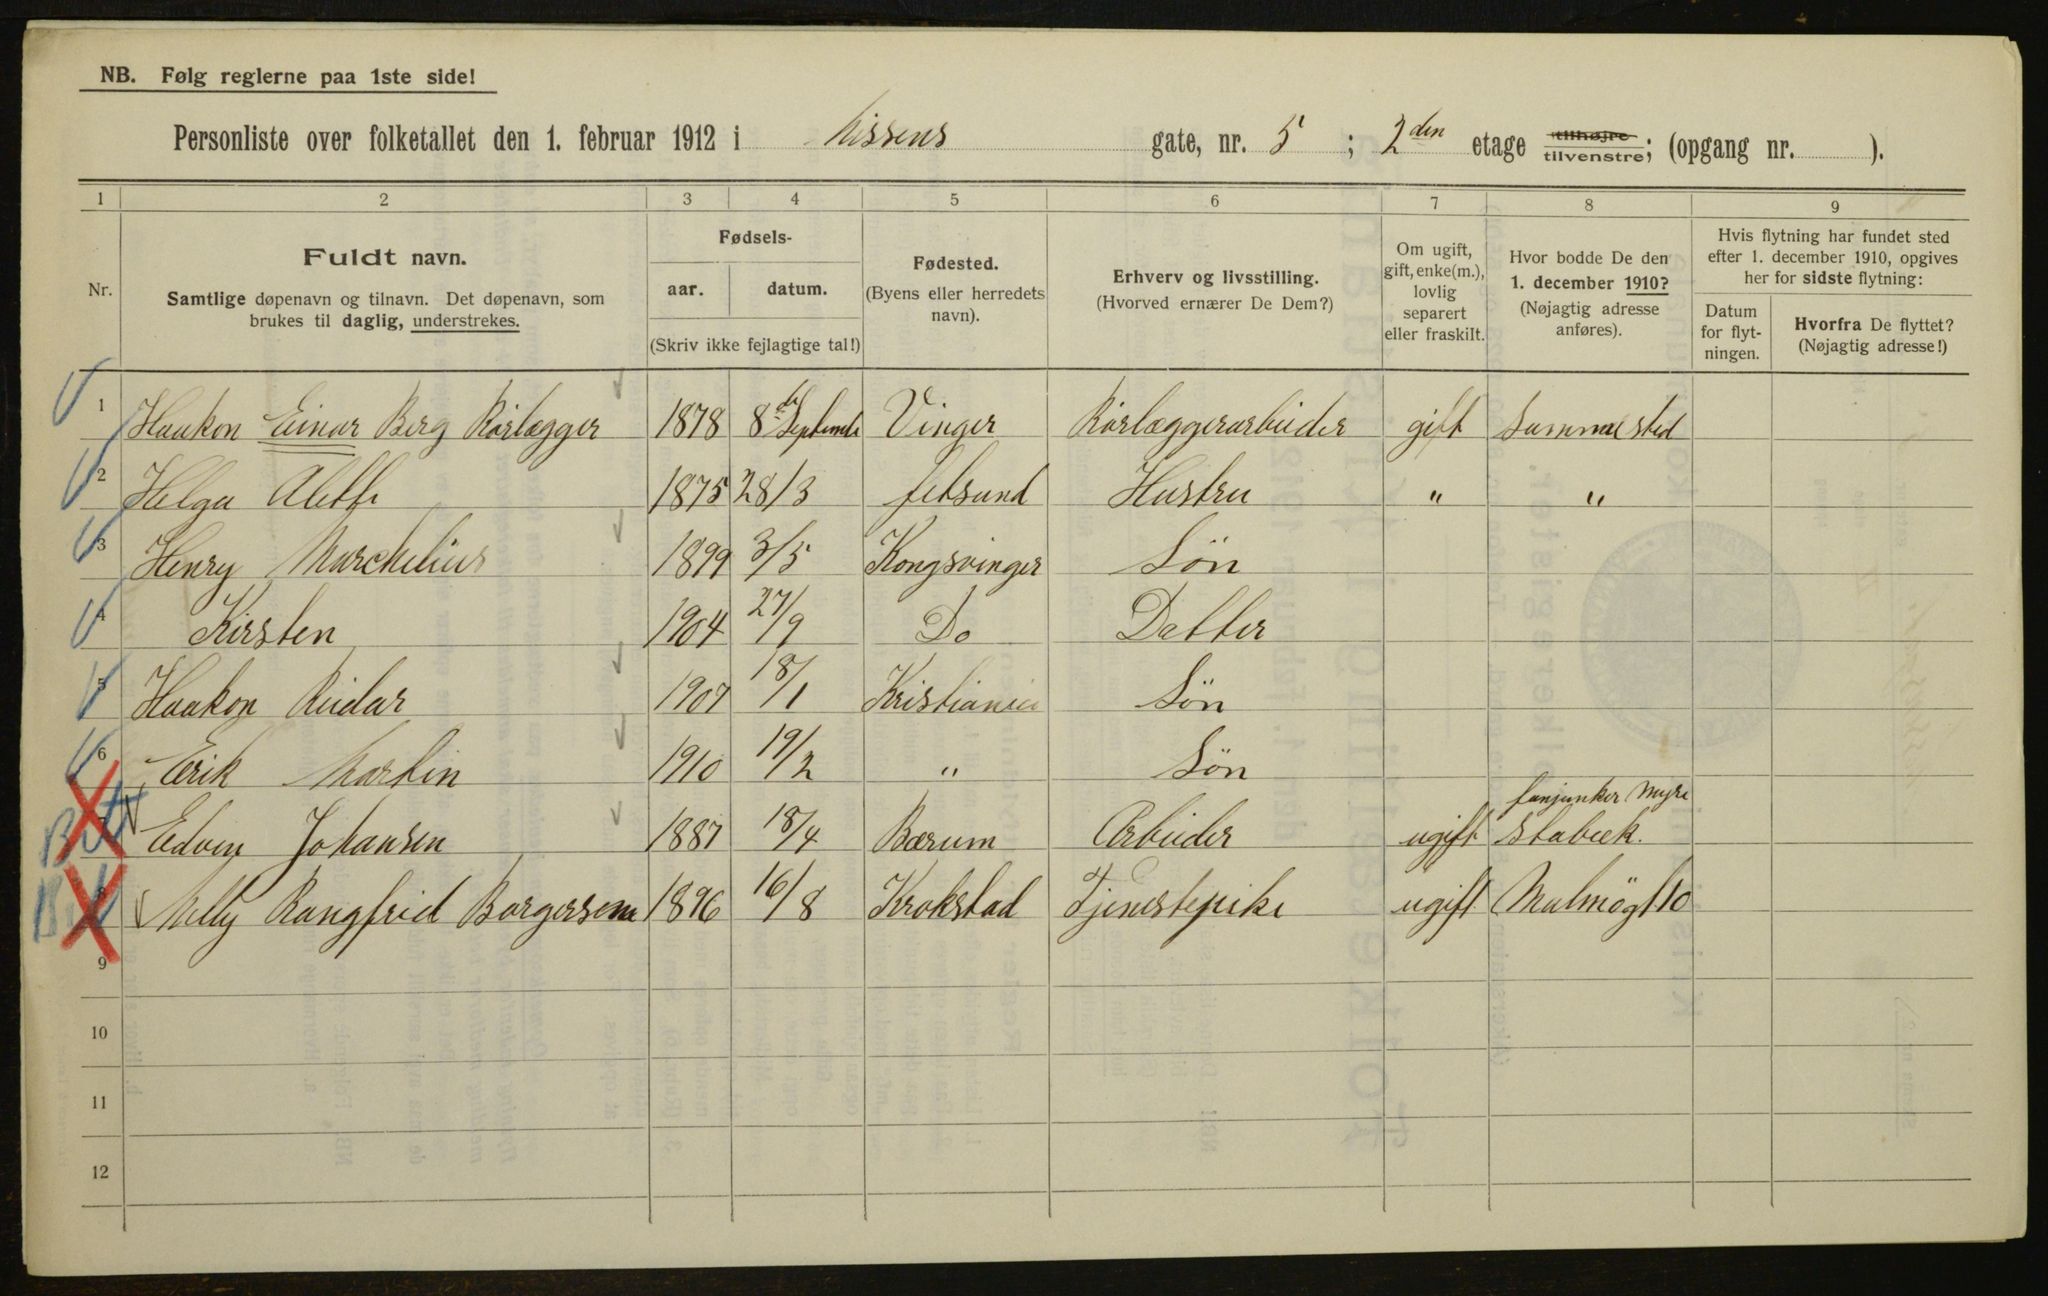 NB. Følg reglerne paa 1ste side!
Personliste over folketallet den 1. februar 1912 i Nissens gate, nr. 5 ; 2den etage tilhøjre tilvenstre; (opgang nr. ).
1 2 3 4 5 6 7 8 9
Nr.
Fuldt navn.
Samtlige døpenavn og tilnavn. Det døpenavn, som
brukes til daglig, understrekes.
Fødsels-
aar. datum.
(Skriv ikke fejlagtige tal!)
Fødested.
(Byens eller herredets
navn).
Erhverv og livsstilling.
(Hvorved ernærer De Dem?)
Om ugift,
gift, enke(m.),
lovlig
separert
eller fraskilt.
Hvor bodde De den
1. december 1910?
(Nøjagtig adresse
anføres).
Hvis flytning har fundet sted
efter 1. december 1910, opgives
her for sidste flytning:
Datum
for flyt-
ningen.
Hvorfra De flyttet?
(Nøjagtig adresse!)
1 Haakon Einar Berg Rørlægger 1878 8de Septembr Vinger Rørlæggerarbeider gift Samme sted
2 Helga Alette 1875 28/3 fetsund Hustru " "
3 Henry Marchelius 1899 3/5 Kongsvinger Søn
4 Kirsten 1904 27/9 Do Datter
5 Haakon Reidar 1907 18/1 Kristiania Søn
6 Erik Martin 1910 19/2 " Søn
7 Edvin Johansen 1887 18/4 Bærum Arbeider ugift fanjunker Myre Stabæk.
8 Nelly Rangfrid Borgersen 1896 16/8 Krokstad Tjenestepike ugift Malmögt 10
9
10
11
12